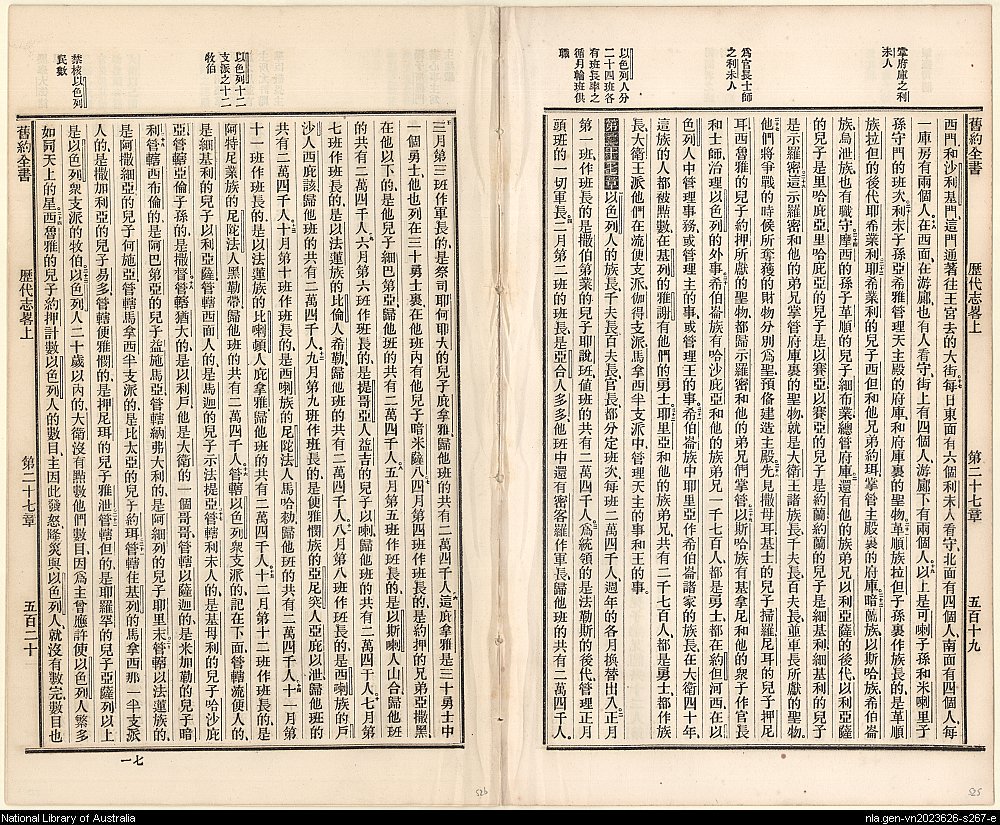 舊約全書
歷代志畧上
第二十七章
五百十九
掌府庫之利
未人
爲官長士師
之利未人
以色列人分
二十四班各
有班長率之
循月輪班供
職
西門和沙利基門這門通著往王宮去的大街每日東面有六個利未人看守北面有四個人南面有四個人每
一庫房有兩個人在西面在游廊也有人看守街上有四個人游廊下有兩個人以上是可喇子孫和米喇里子
孫守門的班次利未子孫亞希雅管理天主殿的府庫和府庫裏的聖物革順族拉但子孫裏作族長的是革順
族拉但的後代耶希業利耶希業利的兒子西但和他兄弟約珥掌管主殿裏的府庫暗蘭族以斯哈族希伯崙
族烏泄族也有職守摩西的孫子革順的兒子細布業總管府庫還有他的族弟兄以利亞薩的後代以利亞薩
的兒子是里哈庇亞里哈庇亞的兒子是以賽亞以賽亞的兒子是約蘭約蘭的兒子是細基利細基利的兒子
是示羅密這示羅密和他的弟兄掌管府庫裏的聖物就是大衛王諸族長千夫長百夫長並軍長所獻的聖物
他們將爭戰的時候所奪獲的財物分別爲聖預備建造主殿先見撒母耳基士的兒子掃羅尼耳的兒子押尼
耳西魯雅的兒子約押所獻的聖物都歸示羅密和他的弟兄們掌管以斯哈族有基拿尼和他的衆子作官長
和士師治理以色列的外事希伯崙族有哈沙庇亞和他的族弟兄一千七百人都是勇士都在約但河西在以
色列人中管理事務或管理主的事或管理王的事希伯崙族中耶里亞作希伯崙諸家的族長在大衛四十年
這族的人都被點數在基列的雅謝有他們的勇士耶里亞和他的族弟兄共有二千七百人都是勇士都作族
長大衛王派他們在流便支派伽得支派馬拿西半支派中管理天主的事和王的事
第二十七章以色列人的族長千夫長百夫長官長都分定班次每班二萬四千人週年的各月換替出入
第一班作班長的是撒伯第業的兒子耶說班値班的共有二萬四千人爲統領的是法勒斯的後代管理正月
頭班的一切軍長二月第二班的班長是亞合人多多他班中還有密客羅作軍長歸他班的共有二萬四千人
以色列十二
支派之十二
牧伯
禁核以色列
民數
三月第三班作軍長的是祭司耶何耶大的兒子庇拿雅歸他班的共有二萬四千人這庇拿雅是三十勇士中
一個勇士他也列在三十勇士裏在他班內有他兒子暗米薩八四月第四班作班長的是約押的兄弟亞撒黑
在他以下的是他兒子細巴第亞歸他班的共有二萬四千人五月第五班作班長的是以斯喇人山合歸他班
的共有二萬四千人六月第六班作班長的是提哥亞人益吉的兒子以喇歸他班的共有二萬四千人七月第
七班作班長的是以法蓮族的比倫人希勒歸他班的共有二萬四千人八月第八班作班長的是西喇族的戶
沙人西庇該歸他班的共有二萬四千人九月第九班作班長的是便雅憫族的亞尼突人亞庇以泄歸他班的
共有二萬四千人十月第十班作班長的是西喇族的尼陀法人馬哈勑歸他班的共有二萬四千人十一月第
十一班作班長的是以法蓮族的比喇頓人庇拿雅歸他班的共有二萬四千人十二月第十二班作班長的是
阿特尼業族的尼陀法人黑勒帶歸他班的共有二萬四千人管轄以色列衆支派的記在下面管轄流便人的
是細基利的兒子以利亞薩管轄西面人的是馬迦的兒子示法提亞管轄利未人的是基母利的兒子哈沙庇
亞管轄亞倫子孫的是撒督管轄猶大的是以利戶他是大衛的一個哥哥管轄以薩迦的是米加勒的兒子暗
利管轄西布倫的是阿巴第亞的兒子益施馬亞管轄納弗大利的是阿細列的兒子耶里末管轄以法蓮族的
是阿撒細亞的兒子何施亞管轄馬拿西半支派的是比太亞的兒子約珥管轄住基列的馬拿西那一半支派
人的是撒加利亞的兒子易多管轄便雅憫的是押尼珥的兒子雅泄管轄但的是耶羅罕的兒子亞薩列以上
是以色列衆支派的牧伯以色列人二十歲以內的大衛沒有點數他們數目因爲主曾應許使以色列人繁多
如同天上的星西魯雅的兒子約押計數以色列人的數目主因此發怒降災與以色列人就沒有數完數目也
舊約全書
歷代志畧上
第二十七章
五百二十
七一
526
525
National Library of Australia
nla.gen-vn2023626-s267-e